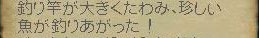 釣り竿が大きくたわみ、珍しい
魚が釣りあがった！